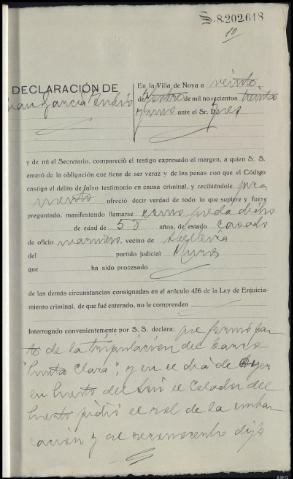 S.8.202.618
10
DECLARACIÓN DE
Juan García
En la Villa de Noya a veinte
de de mil novecientos treinta
y uno ante el Sr. Juez
y de mí el Secretario, compareció el testigo expresado al margen, a quien S. S.
enteró de la obligación que tiene de ser veraz y de las penas con que el Código
castiga el delito de falso testimonio en causa criminal, y recibiéndole jura
mento ofreció decir verdad de todo lo que supiere y fuere
preguntado, manifestando llamarse como queda dicho
de edad de 50 años, de estado casado
de oficio marinero, vecino de
del partido judicial Muros
que ha sido procesado
de las demás circunstancias consignadas en el artículo 436 de la Ley de Enjuicia-
miento criminal, de que fué enterado, no le comprenden
Interrogado convenientemente por S. S. declara: que formó par
te de la tripulación del barco
"Punta Clara", y en el día de ayer
en Puerto del Son el Celador del
Puerto pidió el rol de la embar
cación y al reconocerlo dijo